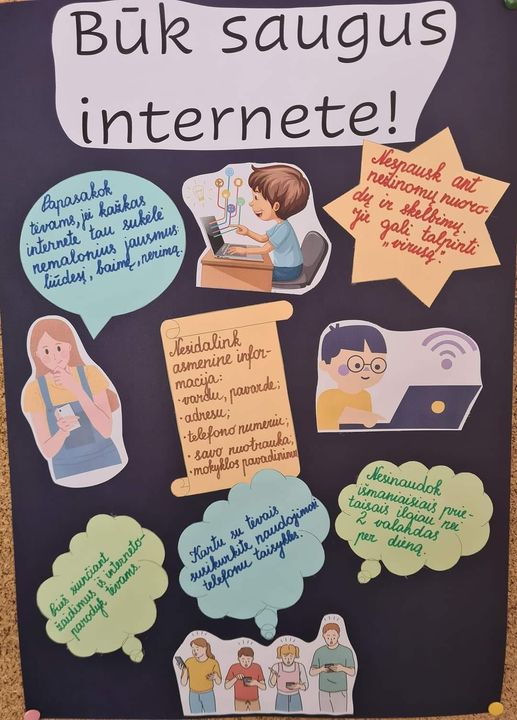 Būk saugus
internete!
Papasakok
tėvams, jei kažkas
internete tau sukėlė
nemalonius jausmus:
liūdesį, baimę, nerimą.
Nespausk ant
nežinomų nuoro-
dų ir skelbimų,
jie gali talpinti
„virusą“.
Nesidalink
asmenine infor-
macija:
• vardu, pavarde;
• adresu;
• telefono numeriu;
• savo nuotrauka;
• mokyklos pavadinimu
Nesinaudok
išmaniaisiais prie-
taisais ilgiau nei
2 valandas
per dieną.
Kartu su tėvais
susikurkite naudojimosi
telefonu taisykles.
Prieš siunčiant
žaidimus iš interneto-
parodyk tėvams.